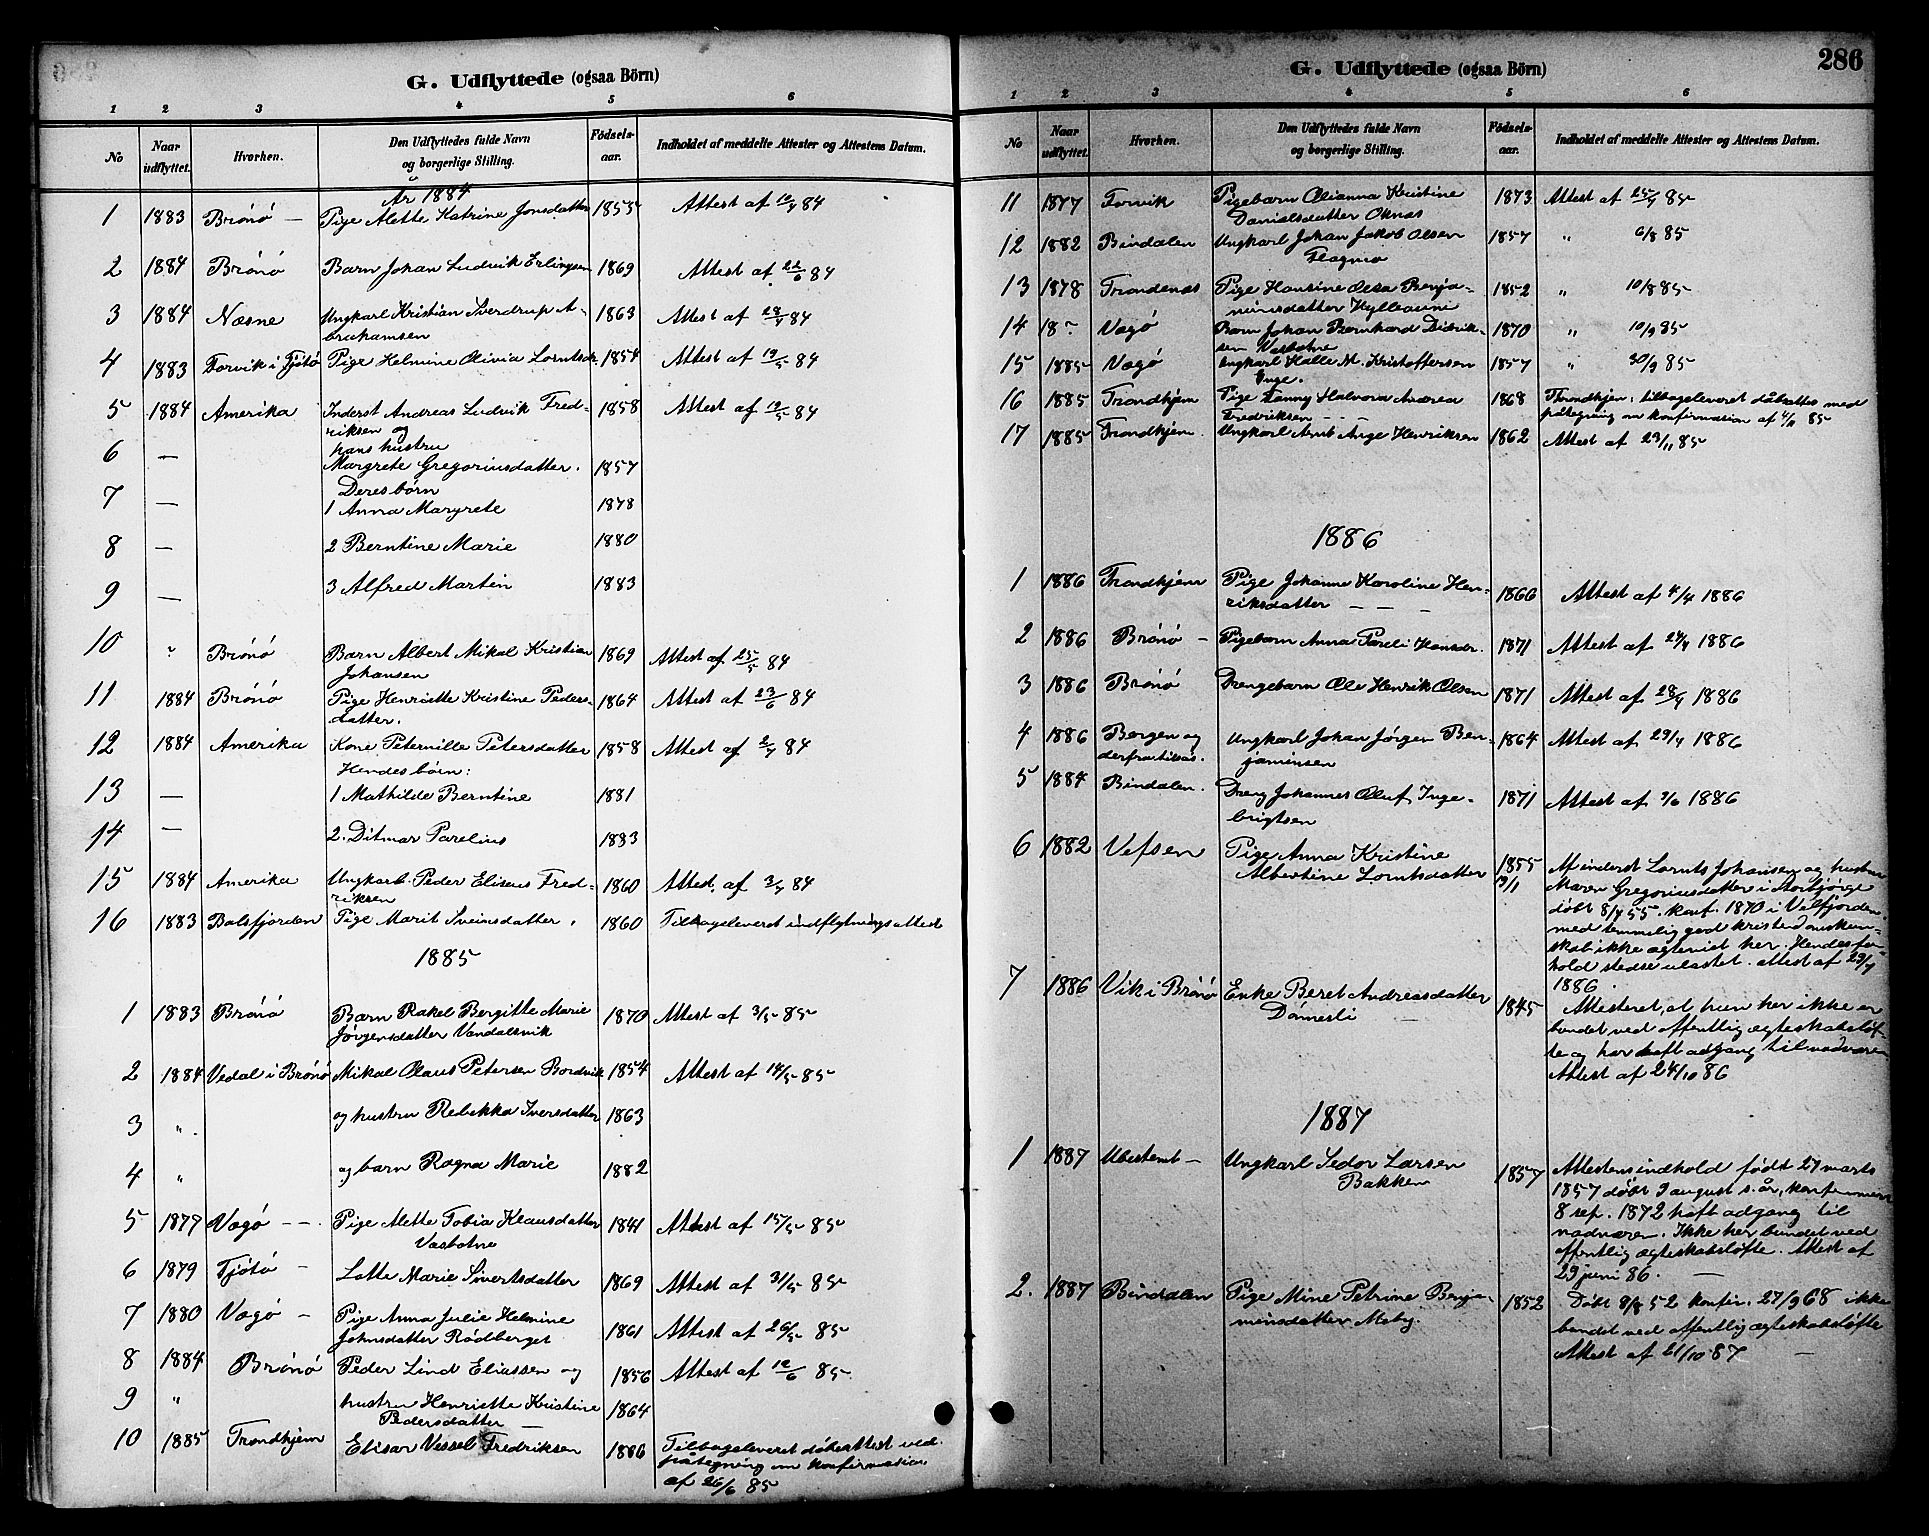 G. Udflyttede (ogsaa Börn)
1 2 3 4 5 6
No
Naar udflyttet.
Hvorhen.
Den Udflyttedes fulde Navn og borgerlige Stilling.
Födsels-aar.
Indholdet af meddelte Attester og Attestens Datum.
År 1884
1 1883 Brönö — Pige Alette Katrine Jonsdatter 1855 Attest af 84
2 1884 Brönö Barn Johan Ludvik Erlingsen 1869 Attest af 84
3 1884 Næsne Ungkarl Kristian Sverdrup A- 1863 Attest af 84
brahamsen
4 1883 Forvik i Tjötö Pige Helmine Olivia Lorntsdr. 1854 Attest af 84
5 1884 Amerika Inderst Andreas Ludvik Fred- 1858 Attest af 84
riksen og
6 — hans hustru
Margrete Gregoriusdatter. 1857
Deres börn
7 — 1 Anna Margrete 1878
8 — 2 Berntine Marie 1880
9 — 3 Alfred Martin 1883
10 ? Brönö Barn Albert Mikal Kristian 1869 Attest af 25/5 84
Johansen
11 1884 Brönö Pige Henriette Kristine Peders- 1864 Attest af 23/6 84
datter.
12 1884 Amerika Kone Peternille Petersdatter 1858 Attest af 84
Hendes börn:
13 — 1 Mathilde Berntine 1881
14 — 2. Ditmar Parelius 1883
15 1884 Amerika Ungkarl Peder Eliseus Fred- 1860 Attest. af 84
riksen
16 1883 Balsfjorden Pige Marit Sveinsdatter, 1860 Tilbageleveret indflytningsattest
1885
1 1883 Brönö Barn Rakel Bergitte Marie 1870 Attest af 3/5 85
Jörgensdatter Vandalsvik
2 1884 Vedal i Brönö Mikal Olaus Petersen Bordvik 1854 Attest af 14/5 85
3 " og hustru Rebekka Iversdatter 1863
4 " og barn Ragna Marie 1882
5 1877 Vagö — Pige Alette Tobia Klausdatter 1841 Attest af 15/5 85
Vasbotne
6 1879 Tjötö — Lotte Marie Sivertsdatter 1869 Attest af 31/5 85
7 1880 Vagö — Pige Anna Julie Helmine 1861 Attest af 26/5 85
Johnsdatter Rödberget
8 1884 Brönö Peder Lind Eliassen og 1856 Attest af 85.
9 " hustru Henriette Kristine 1864
Pedersdatter —
10 1885 Trondhjem Elisar Vessel Fredriksen 1886 Tilbageleveret döbeattest ved
påtegning om konfirmation
af 26/6 85
G. Udflyttede (ogsaa Börn) 286
1 2 3 4 5 6
No
Naar udflyttet.
Hvorhen.
Den Udflyttedes fulde Navn og borgerlige Stilling.
Födsels-aar.
Indholdet af meddelte Attester og Attestens Datum.
11 1877 Forvik Pigebarn Olianna Kristine 1873 Attest af 85
Danielsdatter Oknas
12 1882 Bindalen Ungkarl Johan Jakob Olsen 1857 " 6/8 85
Flagmo
13 1878 Trondenæs Pige Hansine Olsa Benja- 1852 " 10/8 85
minsdatter
14 18 ? Vagö Barn Johan Bernhard Didrik- 1870 " 10/9 85
sen Vasbotne
15 1885 Vagö Ungkarl Halle M. Kristoffersen 1857 " 30/9 85
16 1885 Trondhjem Pige Fanny Halvora Andrea 1868 Trondhjem, tilbageleveret dåbattes med
Fredriksen — — — påtegning om konfirmation af 85
17 1885 Trondhjem Ungkarl Arnt Ange Henriksen 1862 Attest af 29/11 85
1886
1 1886 Trondhjem Pige Johanne Karoline Hen- 1866 Attest af 4/4 1886
riksdatter — — —
2 1886 Brönö — Pigebarn Anna Pareli Hansdr. 1871 Attest af 1886
3 1886 Brönö Drengebarn Ole Henrik Olsen 1871 Attest af 1886
4 1886 Bergen og Ungkarl Johan Jörgen Ben- 1864 Attest af 1886
derfra tilsøs. jaminsen
5 1884 Bindalen. Dreng Johannes Oluf Inge- 1871 Attest af 1886
brigtsen
6 1882 Vefsen Pige Anna Kristine 1855 Af inderst Lornts Johansen og hustru
Albertine Lorntsdatter 19/1 Maren Gregoriusdatter i Storbjörge
döbt 8/4 55. konf. 1870 i Velfjorden
med temmelig god kristendomskun-
skab ikke ægteviet her. Hendes for-
hold stedse ulastet. attest af 29/4
1886.
7 1886 Vik i Brönö Enke Beret Andreasdatter 1845 Attesteret, at hun her ikke er
— bundet ved offentlig ægteskabslöf-
te og har haft adgang til nadveren
Attest af 24/10 86
1887
1 1887 Ubestemt — Ungkarl Sedor Larsen 1857 Attestens indhold födt 27 marts
Bakken 1857 döbt 9 august s. år, konfirmeret
8 sep. 1872 haft adgang til
nadveren. Ikke her bundet ved
offentlig ægteskabslöfte. Attest af
29 juni 86. —
2. 1887 Bindalen Pige Mine Petrine Benja- 1852 Döbt 8/8 52 konfir. 27/9 68 ikke
minsdatter Moby. bundet ved offentlig ægteskabslöfte
Attest af 21/10 87 —